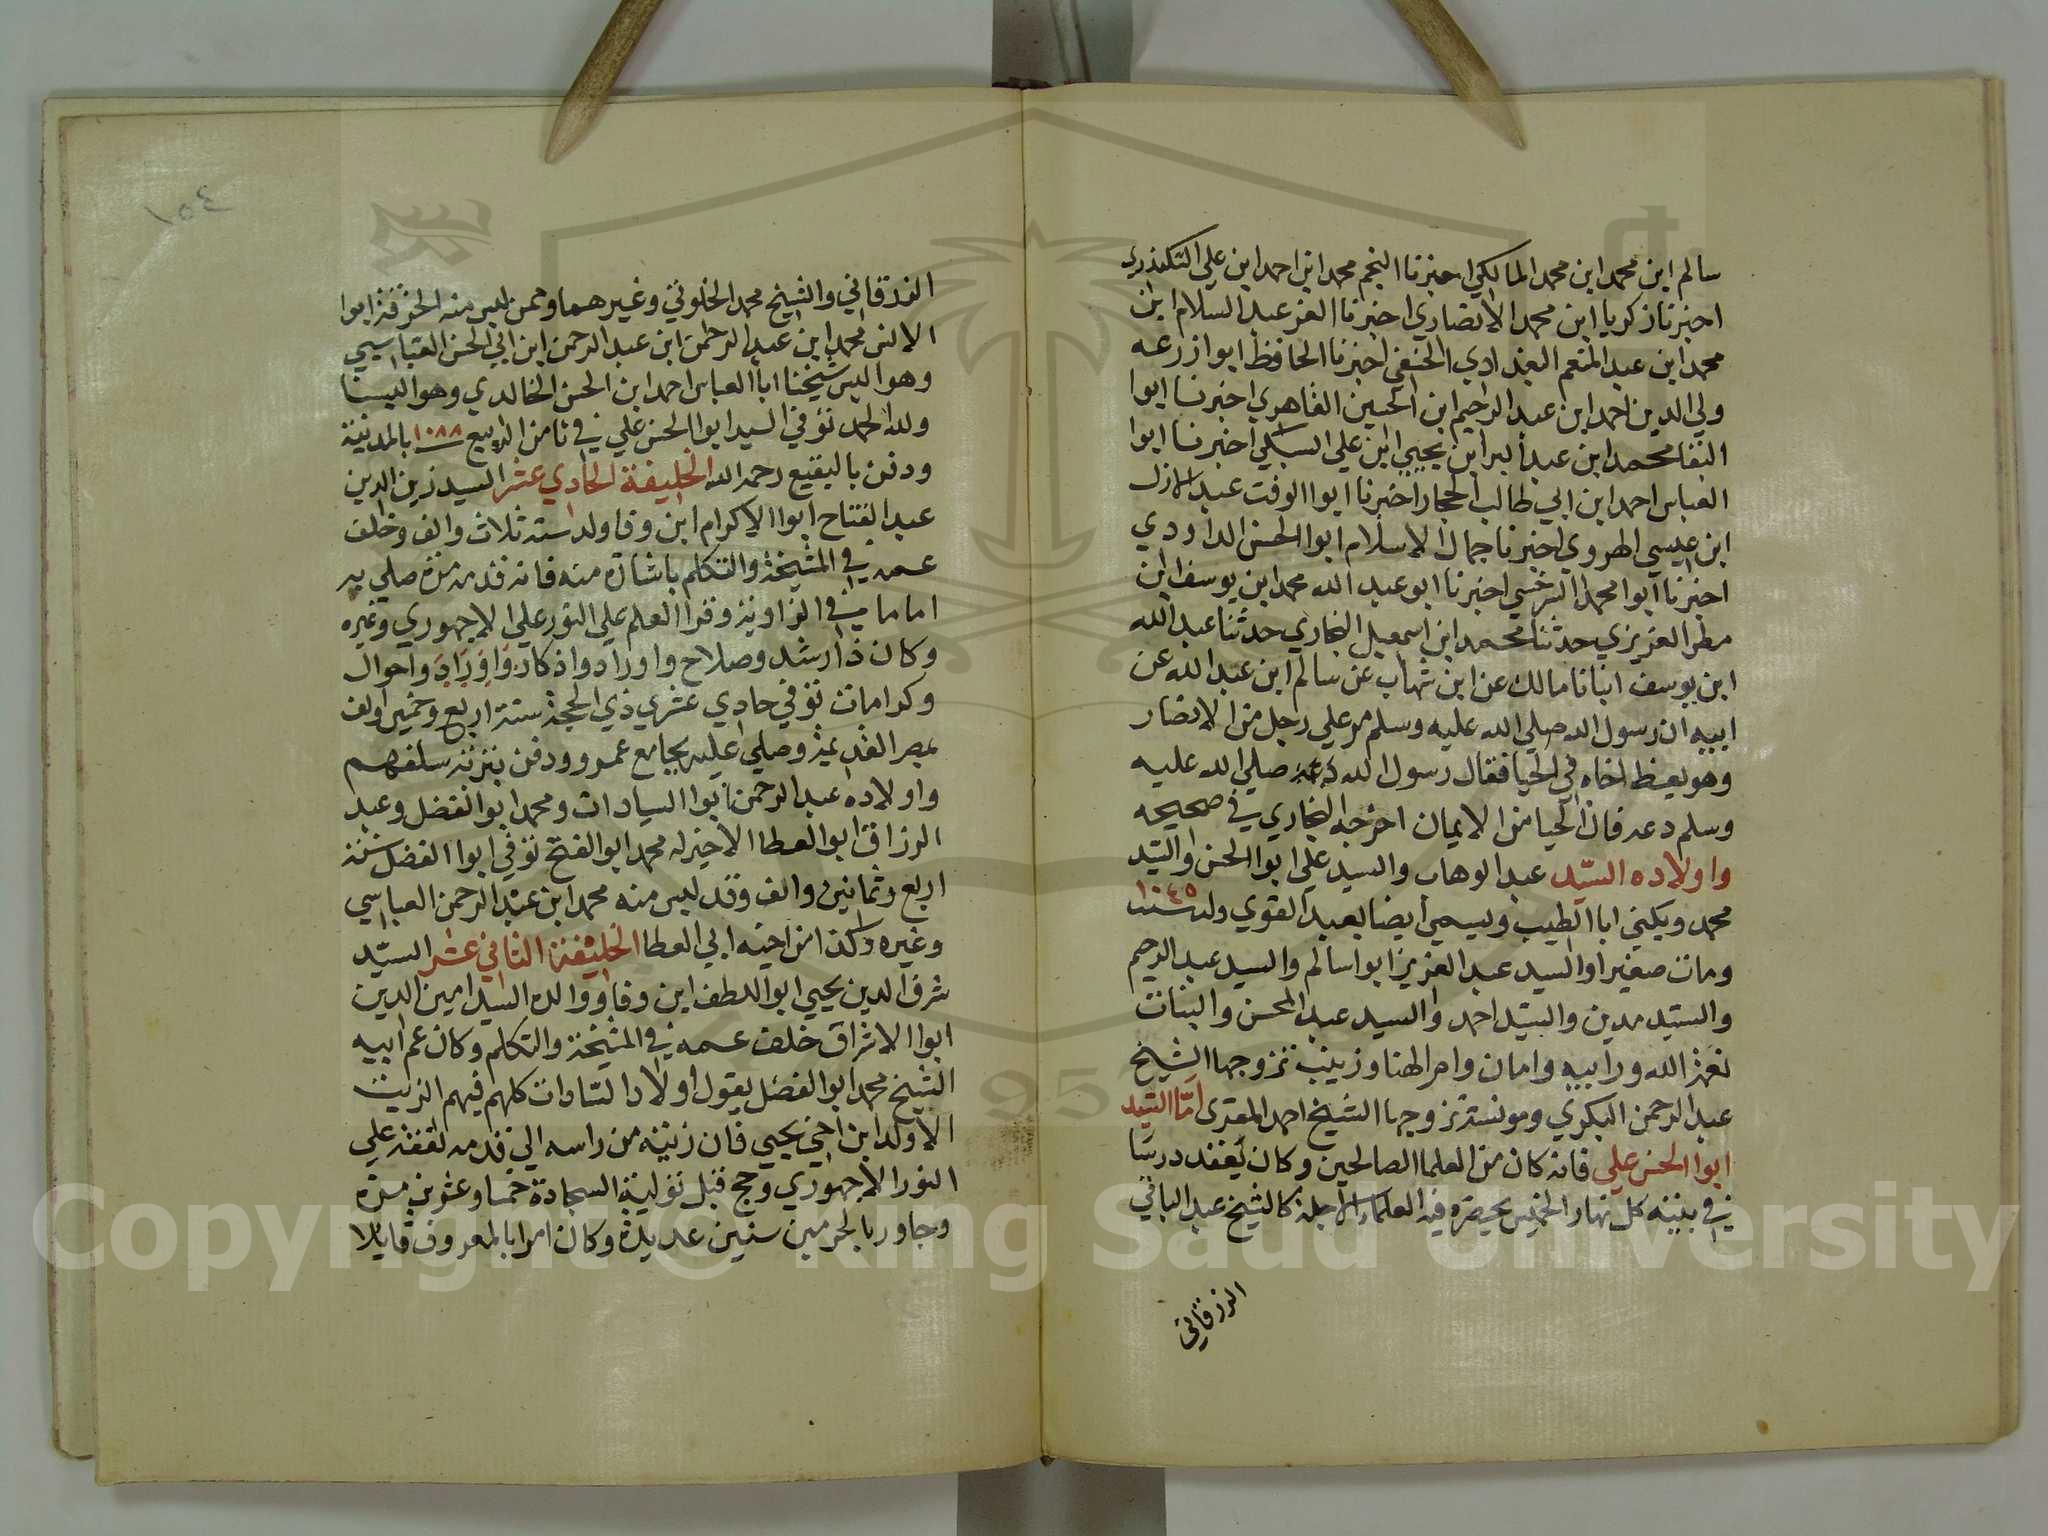 سالم ابن محمد ابن محمد المالكي اخبرنا النجم محمد ابن احمد ابن علي السكندري
اخبرنا زكريا ابن محمد الانصاري اخبرنا العز عبد السلام ابن
محمد ابن عبد المنعم البغدادي الحنفي اخبرنا الحافظ ابوا زرعه
ولي الدين احمد ابن عبد الرحيم ابن الحسين القاهري اخبرنا ابوا
البقا محمد ابن عبد البر ابن يحيي ابن علي السبكي اخبرنا ابوا
العباس احمد ابن ابي طالب الحجار اخبرنا ابوا الوقت عبد الازل
ابن عيسي الهروي اخبرنا جمال الاسلام ابوا الحسن الداودي
اخبرنا ابوا محمد السرخسي اخبرنا ابو عبد الله محمد ابن يوسف ابن
مطر العزيزي حدثنا محمد ابن اسمعيل البخاري حدثنا عبد الله
ابن يوسف انبانا مالك عن ابن شهاب عن سالم ابن عبد الله عن
ابيه ان رسول الله صلي الله عليه وسلم مر علي رجل من الانصار
وهو يعظ اخاه في الحيا فقال رسول الله صلي الله عليه
وسلم دعه فان الحيا من الايمان اخرجه البخاري في صحيحه
واولاده السيد عبد الوهاب والسيد علي ابوا الحسن والسيد
محمد ويكني ابا الطيب ويسمي ايضا بعبد القوي ولد سنة ١٠٤٥
ومات صغيرا والسيد عبد العزيز ابوا سالم والسيد عبد الرحيم
والسيد مدين والسيد احمد والسيد عبد المحسن والبنات
نعمة الله ورابيه وامان وام الهنا وزينب تزوجها الشيخ
عبد الرحمن البكري ومونسة تزوجها الشيخ احمد المقري اما السيد
ابوا الحسن علي فانه كان من العلما الصالحين وكان يعقد درسا
في بيته كل نهار الخميس يحضره فيه العلماء الاجلة كالشيخ عبد الباقي
الزرقاني
١٥٤
الزرقاني والشيخ محمد الخلوتي وغيرهما وممن لبس منه الخرقة ابوا
الانس محمد ابن عبد الرحمن ابن عبد الرحمن ابن ابي الحسن العباسي
وهو البس شيخنا ابا العباس احمد ابن الحسن الخالدي وهو البسنا
ولله الحمد توفي السيد ابوا الحسن علي في ثامن الربيع سنة ١٠٨٨ بالمدينة
ودفن بالبقيع رحمه الله الخليفة الحادي عشر السيد زين الدين
عبد الفتاح ابوا الاكرام ابن وفا ولد سنة ثلاث والف وخلف
عمه في المشيخة والتكلم باشارة منه فانه قدمه مرة صلي به
اماما في الزاوية وقرا العلم علي النور علي الاجهوري وغيره
وكان ذا رشد وصلاح واوراد واذكار واوراد واحوال
وكرامات توفي حادي عشري ذي الحجة سنة اربع وخمسين والف
بمصر القديمة وصلي عليه بجامع عمرو ودفن بتربة سلفهم
واولاده عبد الرحمن ابوا السيادات ومحمد ابوا الفضل وعبد
الرزاق ابوا العطا الاخير له محمد ابوا الفتح توفي ابوا الفضل سنة
اربع وثمانين والف وقد لبس منه محمد ابن عبد الرحمن العباسي
وغيره وكذا من اخيه ابي العطا الخليفة الثاني عشر السيد
شرف الدين يحيي ابوا اللطف ابن وفا ووالده السيد امين الدين
ابوا الاشراق خلف عمه في المشيخة والتكلم وكان عم ابيه
الشيخ محمد ابوا الفضل يقول اولاد السادات كلهم فيهم الزيت
الا ولد ابن اخي يحيي فان زيته من راسه الي قدمه تفقه علي
النور الاجهوري وحج قبل توليه السجادة خمسا وعشرين مرة
وجاور بالحرمين سنين عديدة وكان امرا بالمعروف قايلا
Copyright © King Saud University